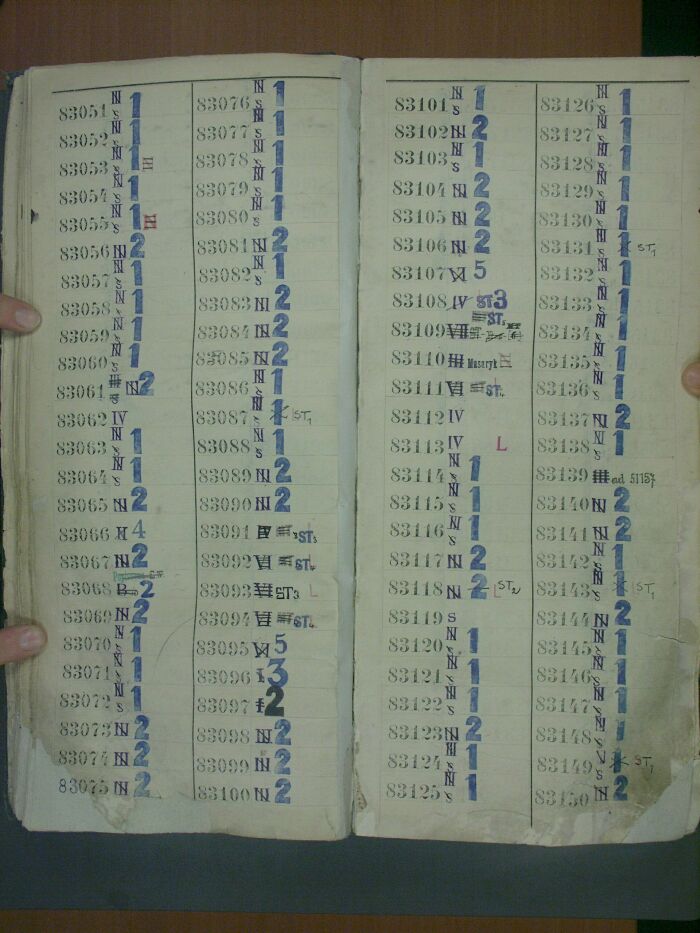 83051 N S 1
83052 N S 1
83053 N S 1
83054 N S 1
83055 N S 1
83056 N 2
83057 N S 1
83058 N S 1
83059 N S 1
83060 N S 1
83061 N 2
83062 IV
83063 N S 1
83064 N S 1
83065 N 2
83066 4
83067 N 2
83068 2
83069 N 2
83070 N S 1
83071 N S 1
83072 N S 1
83073 N 2
83074 N 2
83075 N 2
83076 N S 1
83077 N S 1
83078 N S 1
83079 N S 1
83080 N S 1
83081 N 2
83082 N S 1
83083 N 2
83084 N 2
83085 N 2
83086 N S 1
83087 N S 1 ST1
83088 N S 1
83089 N 2
83090 N 2
83091 ST3
83092 VI L
83093 ST3 L
83094 VI
83095 VI 5
83096 I 3
83097 2
83098 N 2
83099 N 2
83100 N 2
83101 N S 1
83102 N 2
83103 N S 1
83104 N 2
83105 N 2
83106 N 2
83107 VI 5
83108 IV ST3
83109
83110 Masaryk
83111 VI
83112 IV
83113 IV L
83114 N S 1
83115 N S 1
83116 N S 1
83117 N 2
83118 N 2 L ST2
83119 S
83120 N S 1
83121 N S 1
83122 N S 1
83123 N 2
83124 N S 1
83125 N S 1
83126 N S 1
83127 N S 1
83128 N S 1
83129 N S 1
83130 N S 1
83131 N S 1 ST1
83132 N S 1
83133 N S 1
83134 N S 1
83135 N S 1
83136 N S 1
83137 N 2
83138 N S 1
83139 ad 51157
83140 N 2
83141 N 2
83142 N S 1
83143 N S 1 ST1
83144 N 2
83145 N S 1
83146 N S 1
83147 N S 1
83148 N S 1
83149 N S 1 ST1
83150 N 2